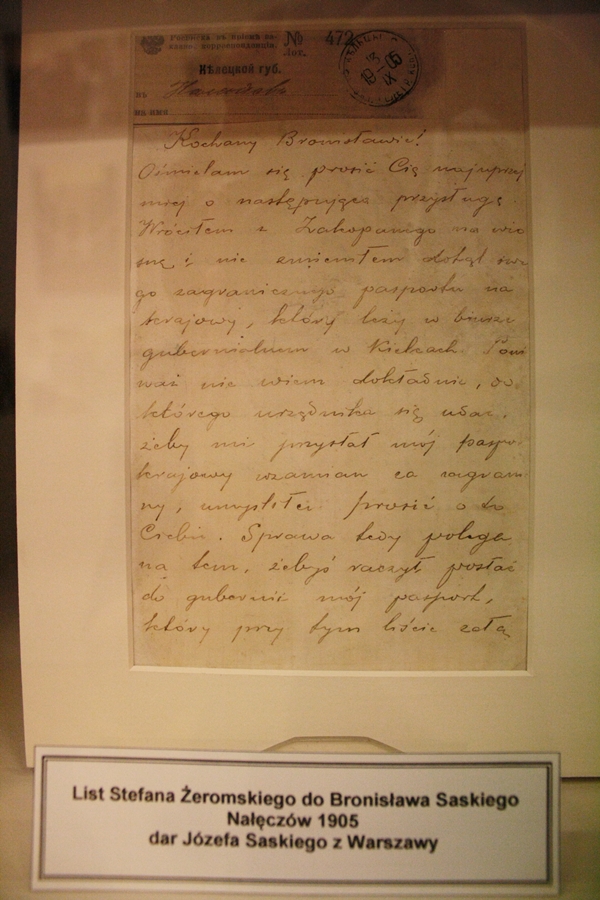 Росписка въ пріемѣ за-
казн. корреспонденціи.
№ 472
Кѣлецкой губ.
въ
на имя
13 IX 05
Kochany Bronisławie!
Ośmielam się prosić Cię najuprzej
miej o następującą przysługę
Wróciłem z Zakopanego na wio
skę i nie zmieniłem dotąd swe
go zagranicznego pasportu na
krajowy, który leży w biurze
gubernialnem w Kielcach. Poni
waż nie wiem dokładnie, do
którego urzędnika się udać,
żeby mi przysłał mój paspo
krajowy wzamian za zagran
ny, umyśliłem prosić o to
Ciebie. Sprawa tedy polega
na tem, żebyś raczył posłać
do gubernii mój pasport,
który przy tym liście załą
List Stefana Żeromskiego do Bronisława Saskiego
Nałęczów 1905
dar Józefa Saskiego z Warszawy